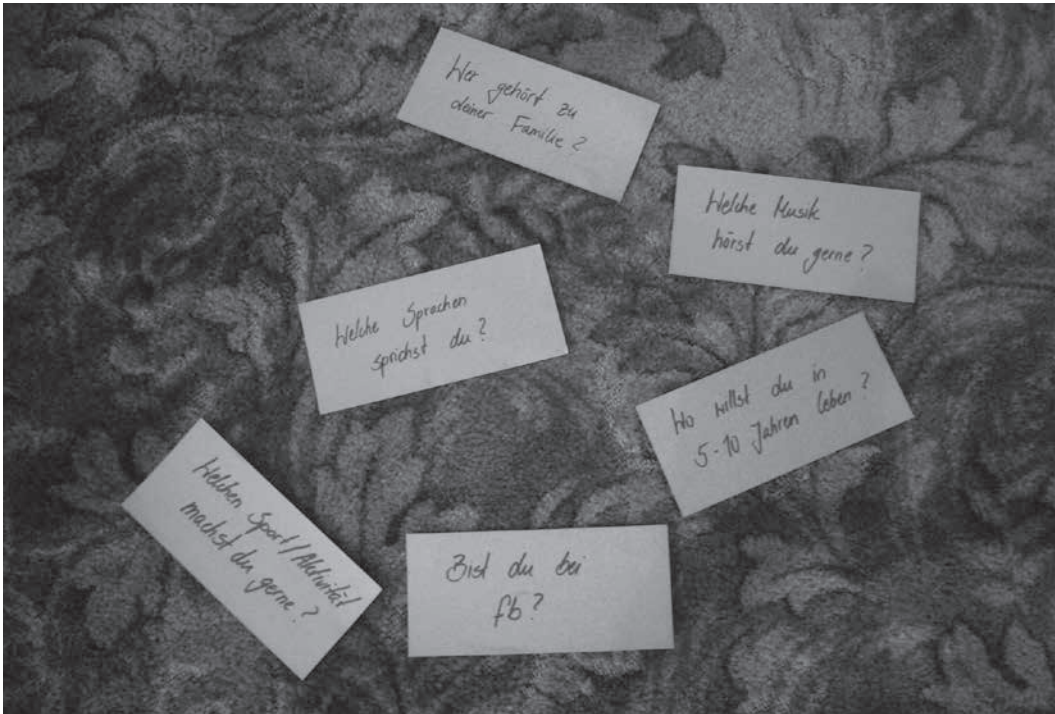 Wer gehört zu
deiner Familie?
Welche Musik
hörst du gerne?
Welche Sprachen
sprichst du?
Wo willst du in
5-10 Jahren leben?
Welchen Sport/Aktivität
machst du gerne?
Bist du bei
fb?